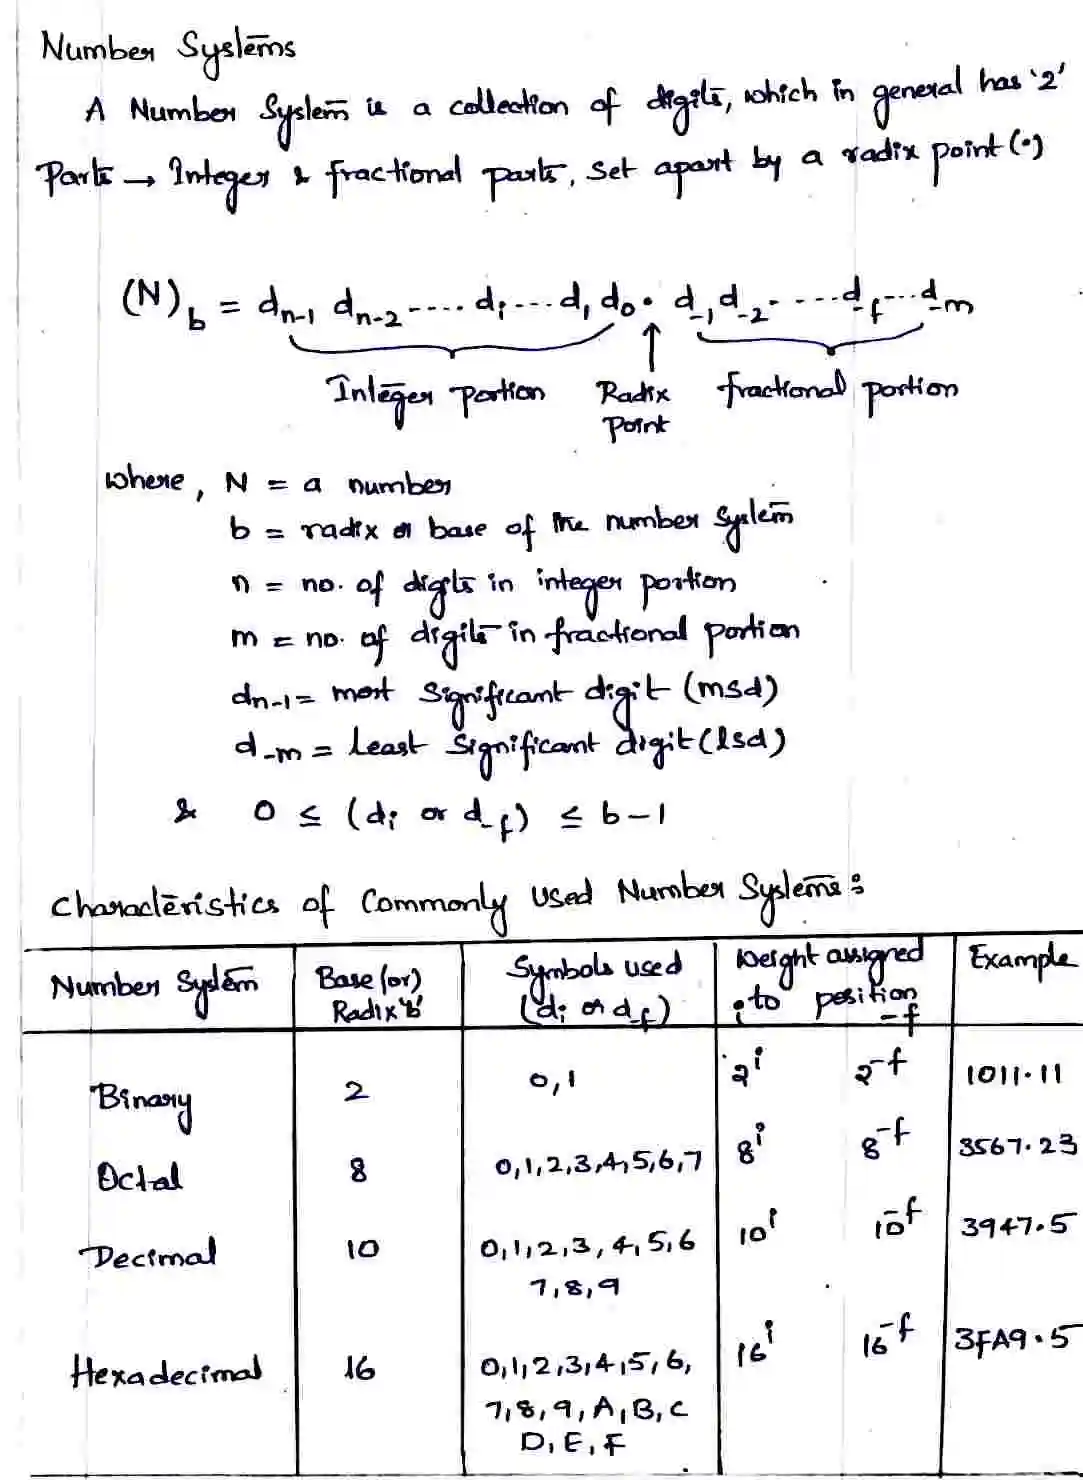 Number Systems
A Number System is a collection of digits, which in general has '2'
Parts → Integer & fractional parts, set apart by a radix point (•)
(N)b = dn-1 dn-2 ---- di --- d1 d0 • d-1 d-2 ---- d-f --- d-m
Integer portion Radix Point fractional portion
where, N = a number
b = radix or base of the number system
n = no. of digits in integer portion
m = no. of digits in fractional portion
dn-1 = most significant digit (msd)
d-m = Least significant digit (lsd)
& 0 ≤ (di or d-f) ≤ b-1
Characteristics of Commonly Used Number Systems:
Number System Base (or) Radix 'b' Symbols used (di or d-f) Weight assigned to position i -f Example
Binary 2 0,1 2^i 2^-f 1011.11
Octal 8 0,1,2,3,4,5,6,7 8^i 8^-f 3567.23
Decimal 10 0,1,2,3,4,5,6 10^i 10^-f 3947.5
7,8,9
Hexadecimal 16 0,1,2,3,4,5,6, 16^i 16^-f 3FA9.5
7,8,9,A,B,C
D,E,F